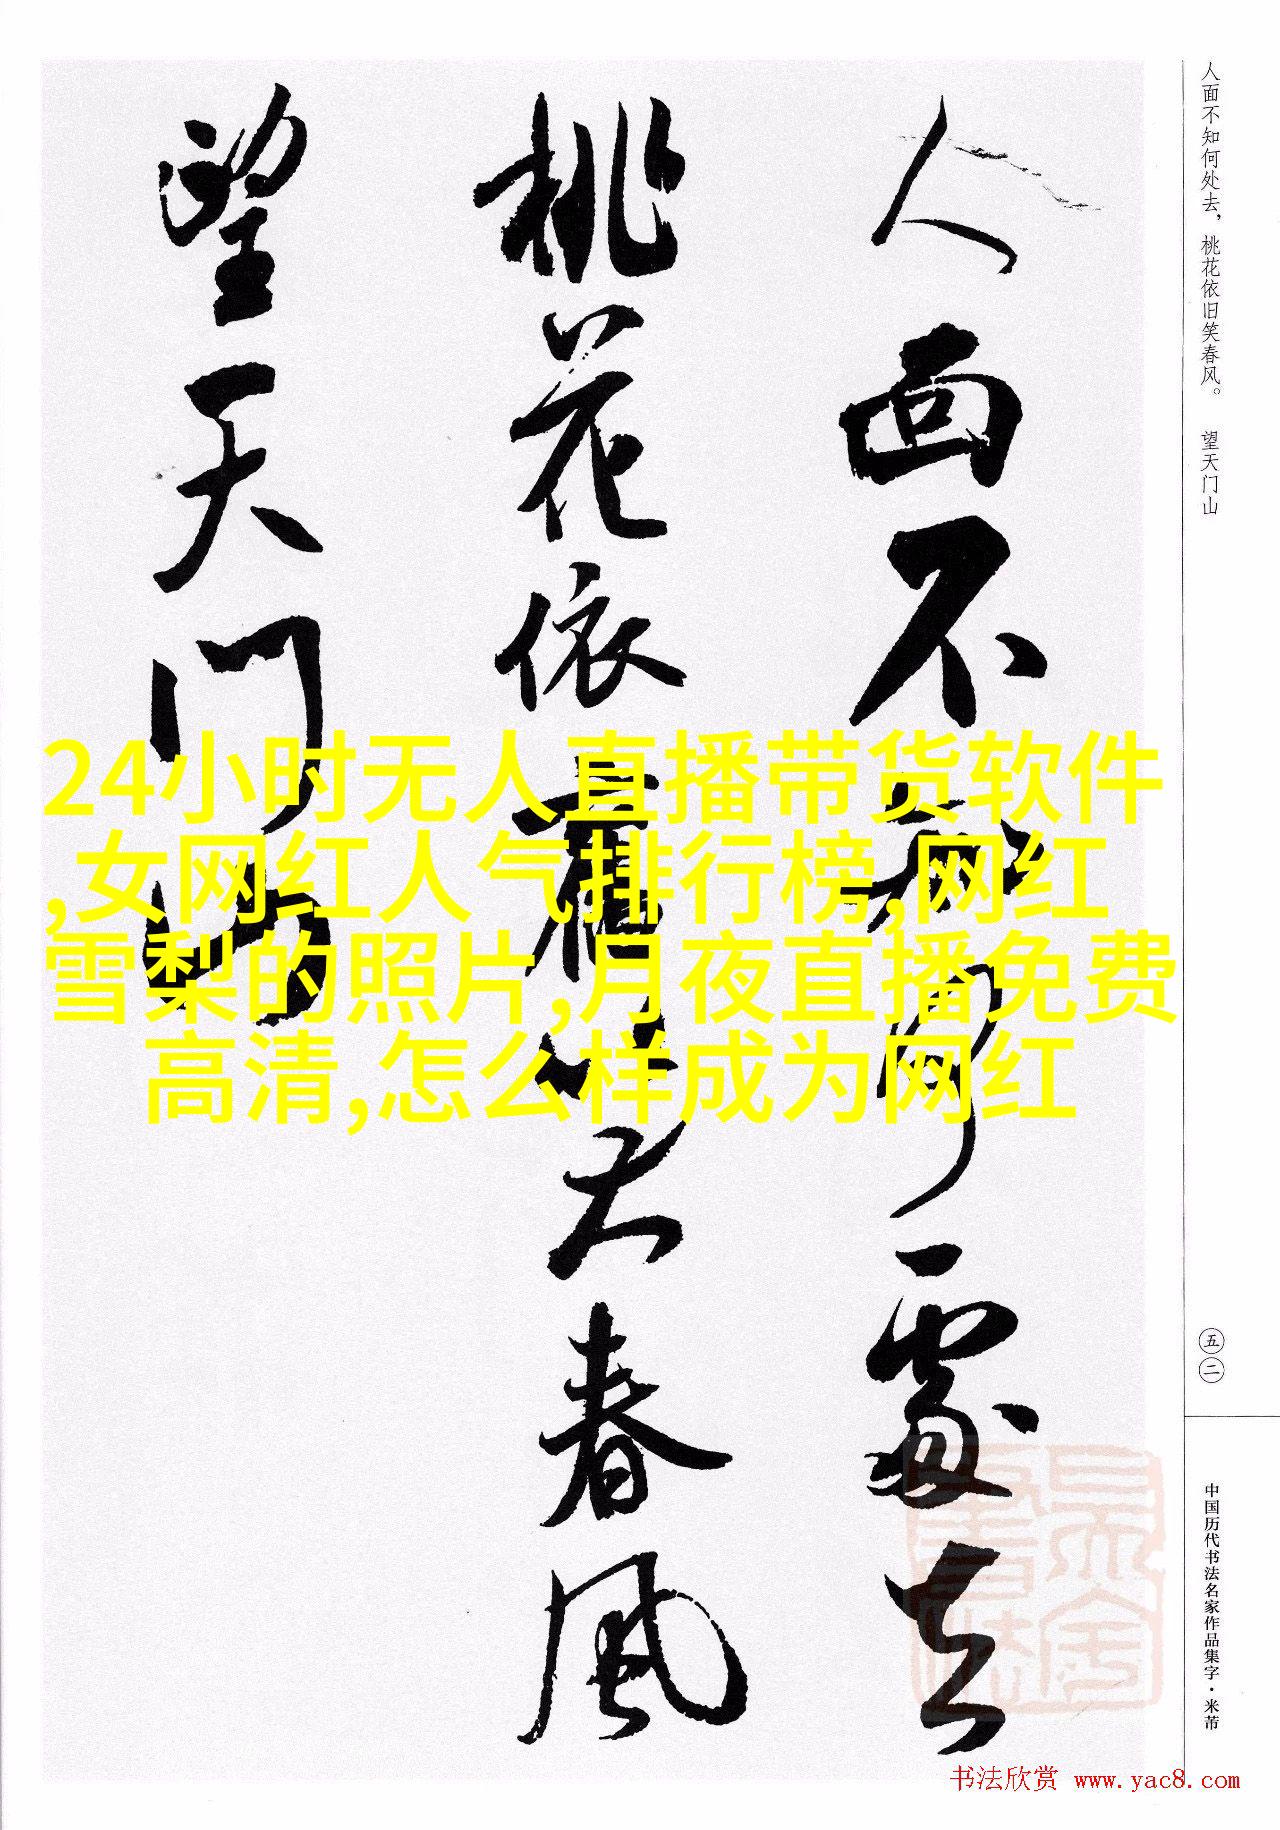 人面不知何處去
桃花依舊笑春風
望天门山
人面不知何处去，桃花依旧笑春风。 望天门山
24小时无人直播带货软件
,女网红人气排行榜,网红
雪梨的照片,月夜直播免费
高清,怎么样成为网红
五二
中国历代书法名家作品集字·米芾
书法欣赏 www.yac8.com